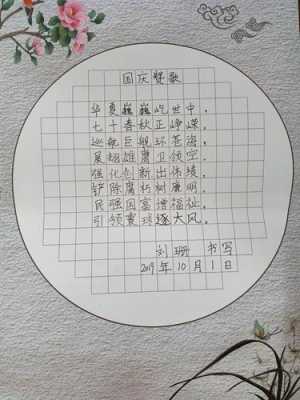 国庆赞歌
华夏巍巍屹世中，
七十春秋正峥嵘。
巡航巨舰环苍海，
展翅雄鹰卫领空。
强化创新出伟绩，
铲除腐朽树廉明。
民强国富增福祉，
引领寰球逐大风。
刘珊 书写
2019年10月1日